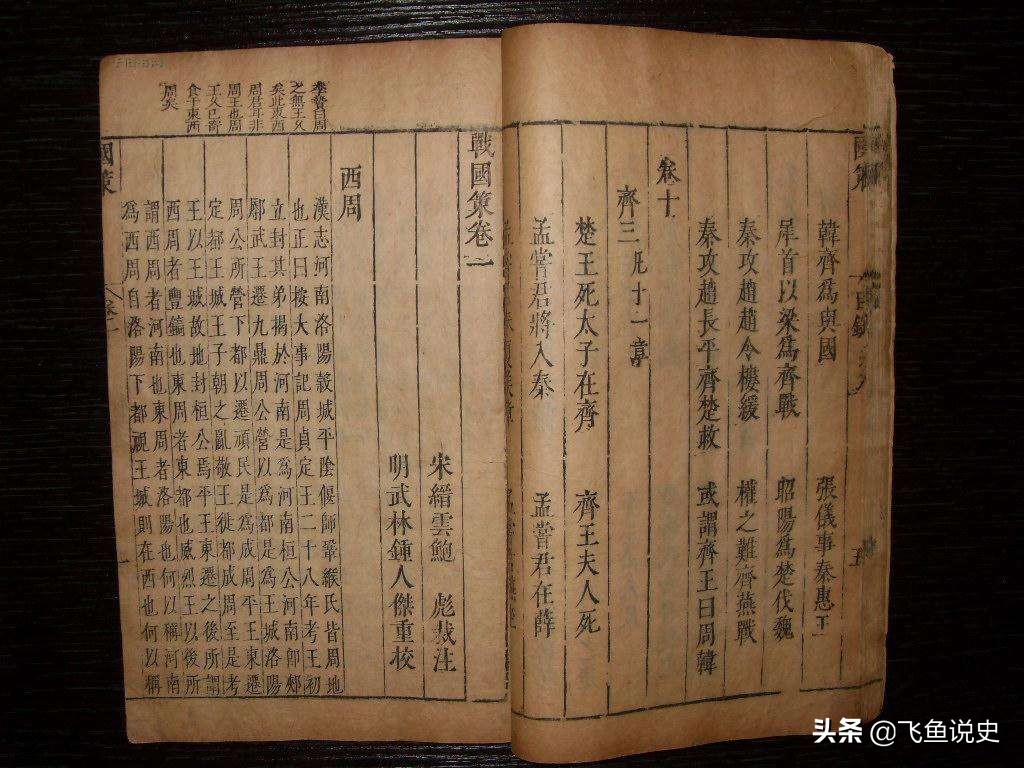 韓齊為與國 張儀事秦惠王
犀首以梁為齊戰 昭陽為楚伐魏
秦攻趙趙令樓緩 權之難齊燕戰
秦攻趙長平齊楚救 或謂齊王曰周韓
卷十
齊三凡十一章
楚王死太子在齊 齊王夫人死
孟嘗君將入秦 孟嘗君在薛
戰國策卷一
宋縉雲鮑 彪裁注
明武林鍾人傑重校
西周
漢志河南洛陽穀城平陰偃師鞏緱氏皆周地
也正曰按大事記周貞定王二十八年考王初
立封其弟揭於河南是為河南桓公河南即郟
鄏武王遷九鼎周公營以為都是為王城洛陽
周公所營下都以遷頑民是為成周平王東遷
定都王城王子朝之亂敬王徙都成周至是考
王以王城故地封桓公焉平王東遷之後所謂
西周者豐鎬也東周者東都也威烈王以後所
謂西周者河南也東周者洛陽也何以稱河南
為西周自洛陽下都視王城則在西也何以稱
之無王久
矣此東西
周君耳非
周王也周
王久已寄
食于東西
周矣
國策
頭条 @飞鱼说史